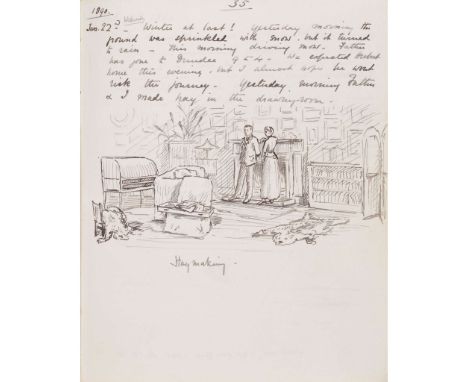 35
1890.
Jan. 22d – Winter at last! Yesterday morning the
ground was sprinkled with snow, but it turned
to rain – This morning driving snow – Father
has gone to Dundee 9 to 4 – We expected
home this evening – but I almost hope he wont
risk the journey – Yesterday morning Father
& I made hay in the drawing-room –
Haymaking –